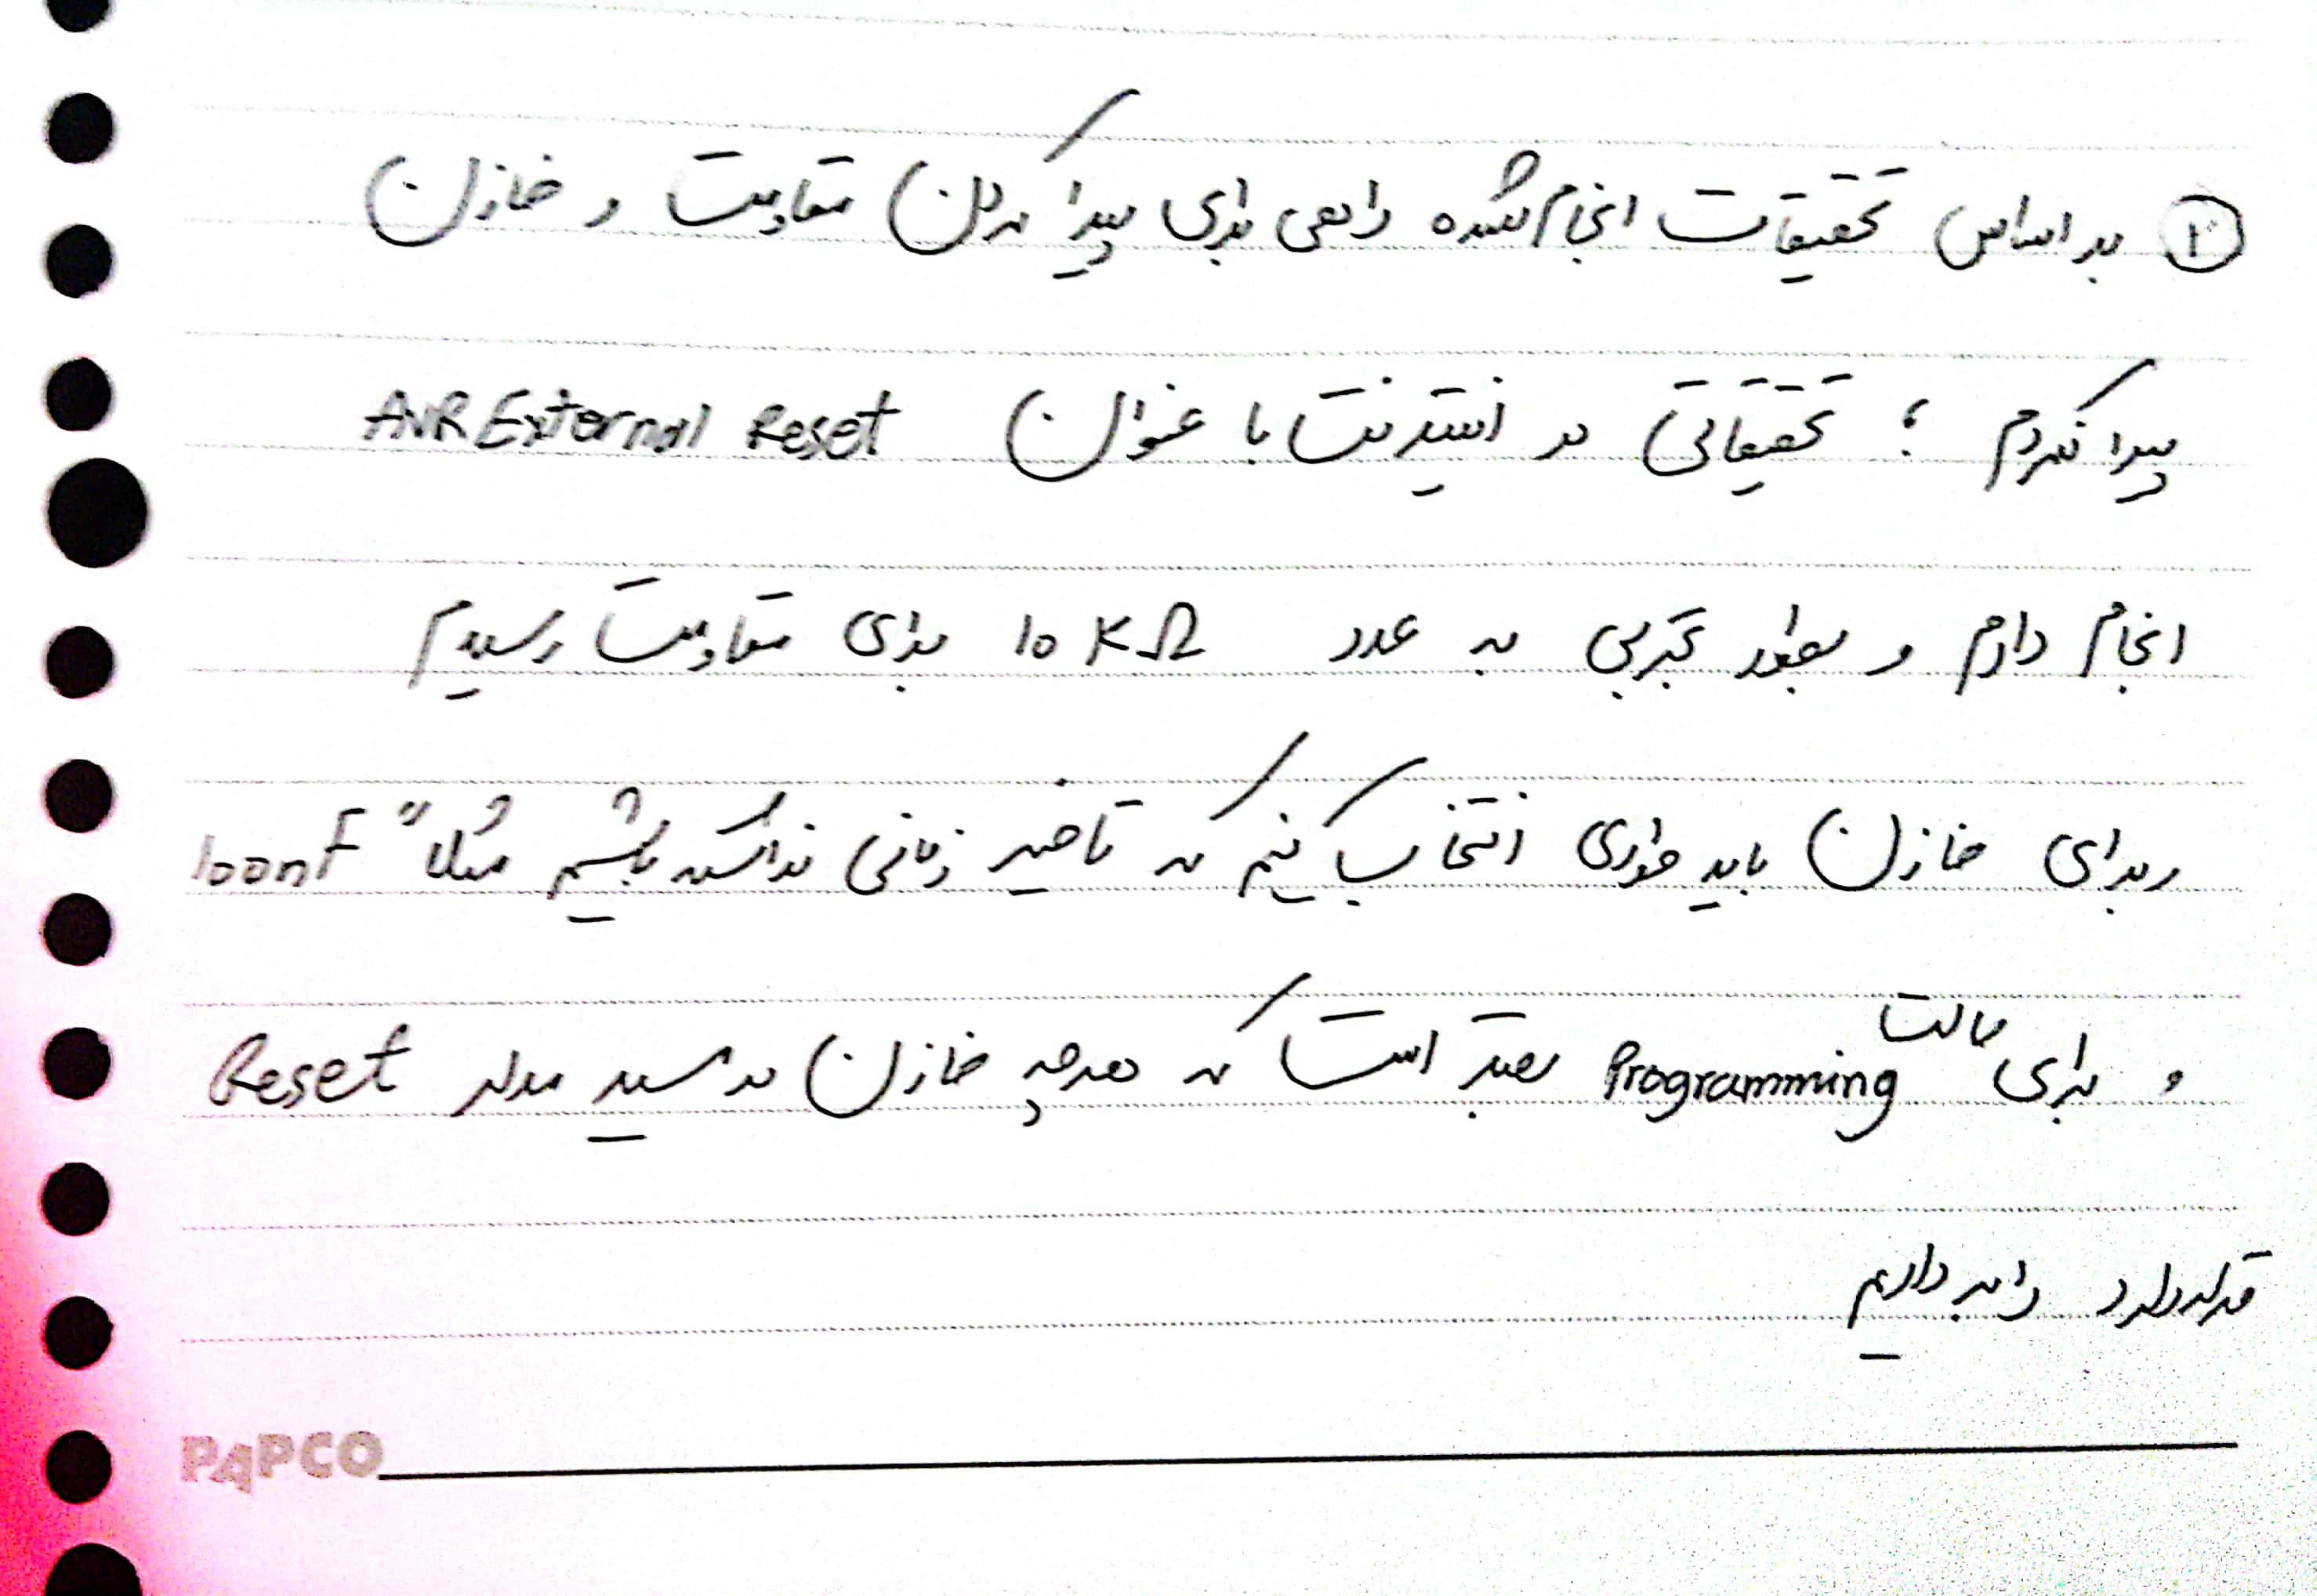 ② بر اساس تحقیقات انجام شده راهی برای پیدا کردن مقاومت و خازن
پیدا نکردم ؛ تحقیقاتی در اینترنت با عنوان AVR External Reset
انجام دادم و بطور تجربی به عدد 10 KΩ برای مقاومت رسیدم
و برای خازن باید طوری انتخاب کنیم که تاخیر زمانی نداشته باشیم مثلاً 100nF
و برای حالت Programming بهتر است که هرچه خازن در مسیر مدار Reset
قرار دارد را برداریم
PAPCO